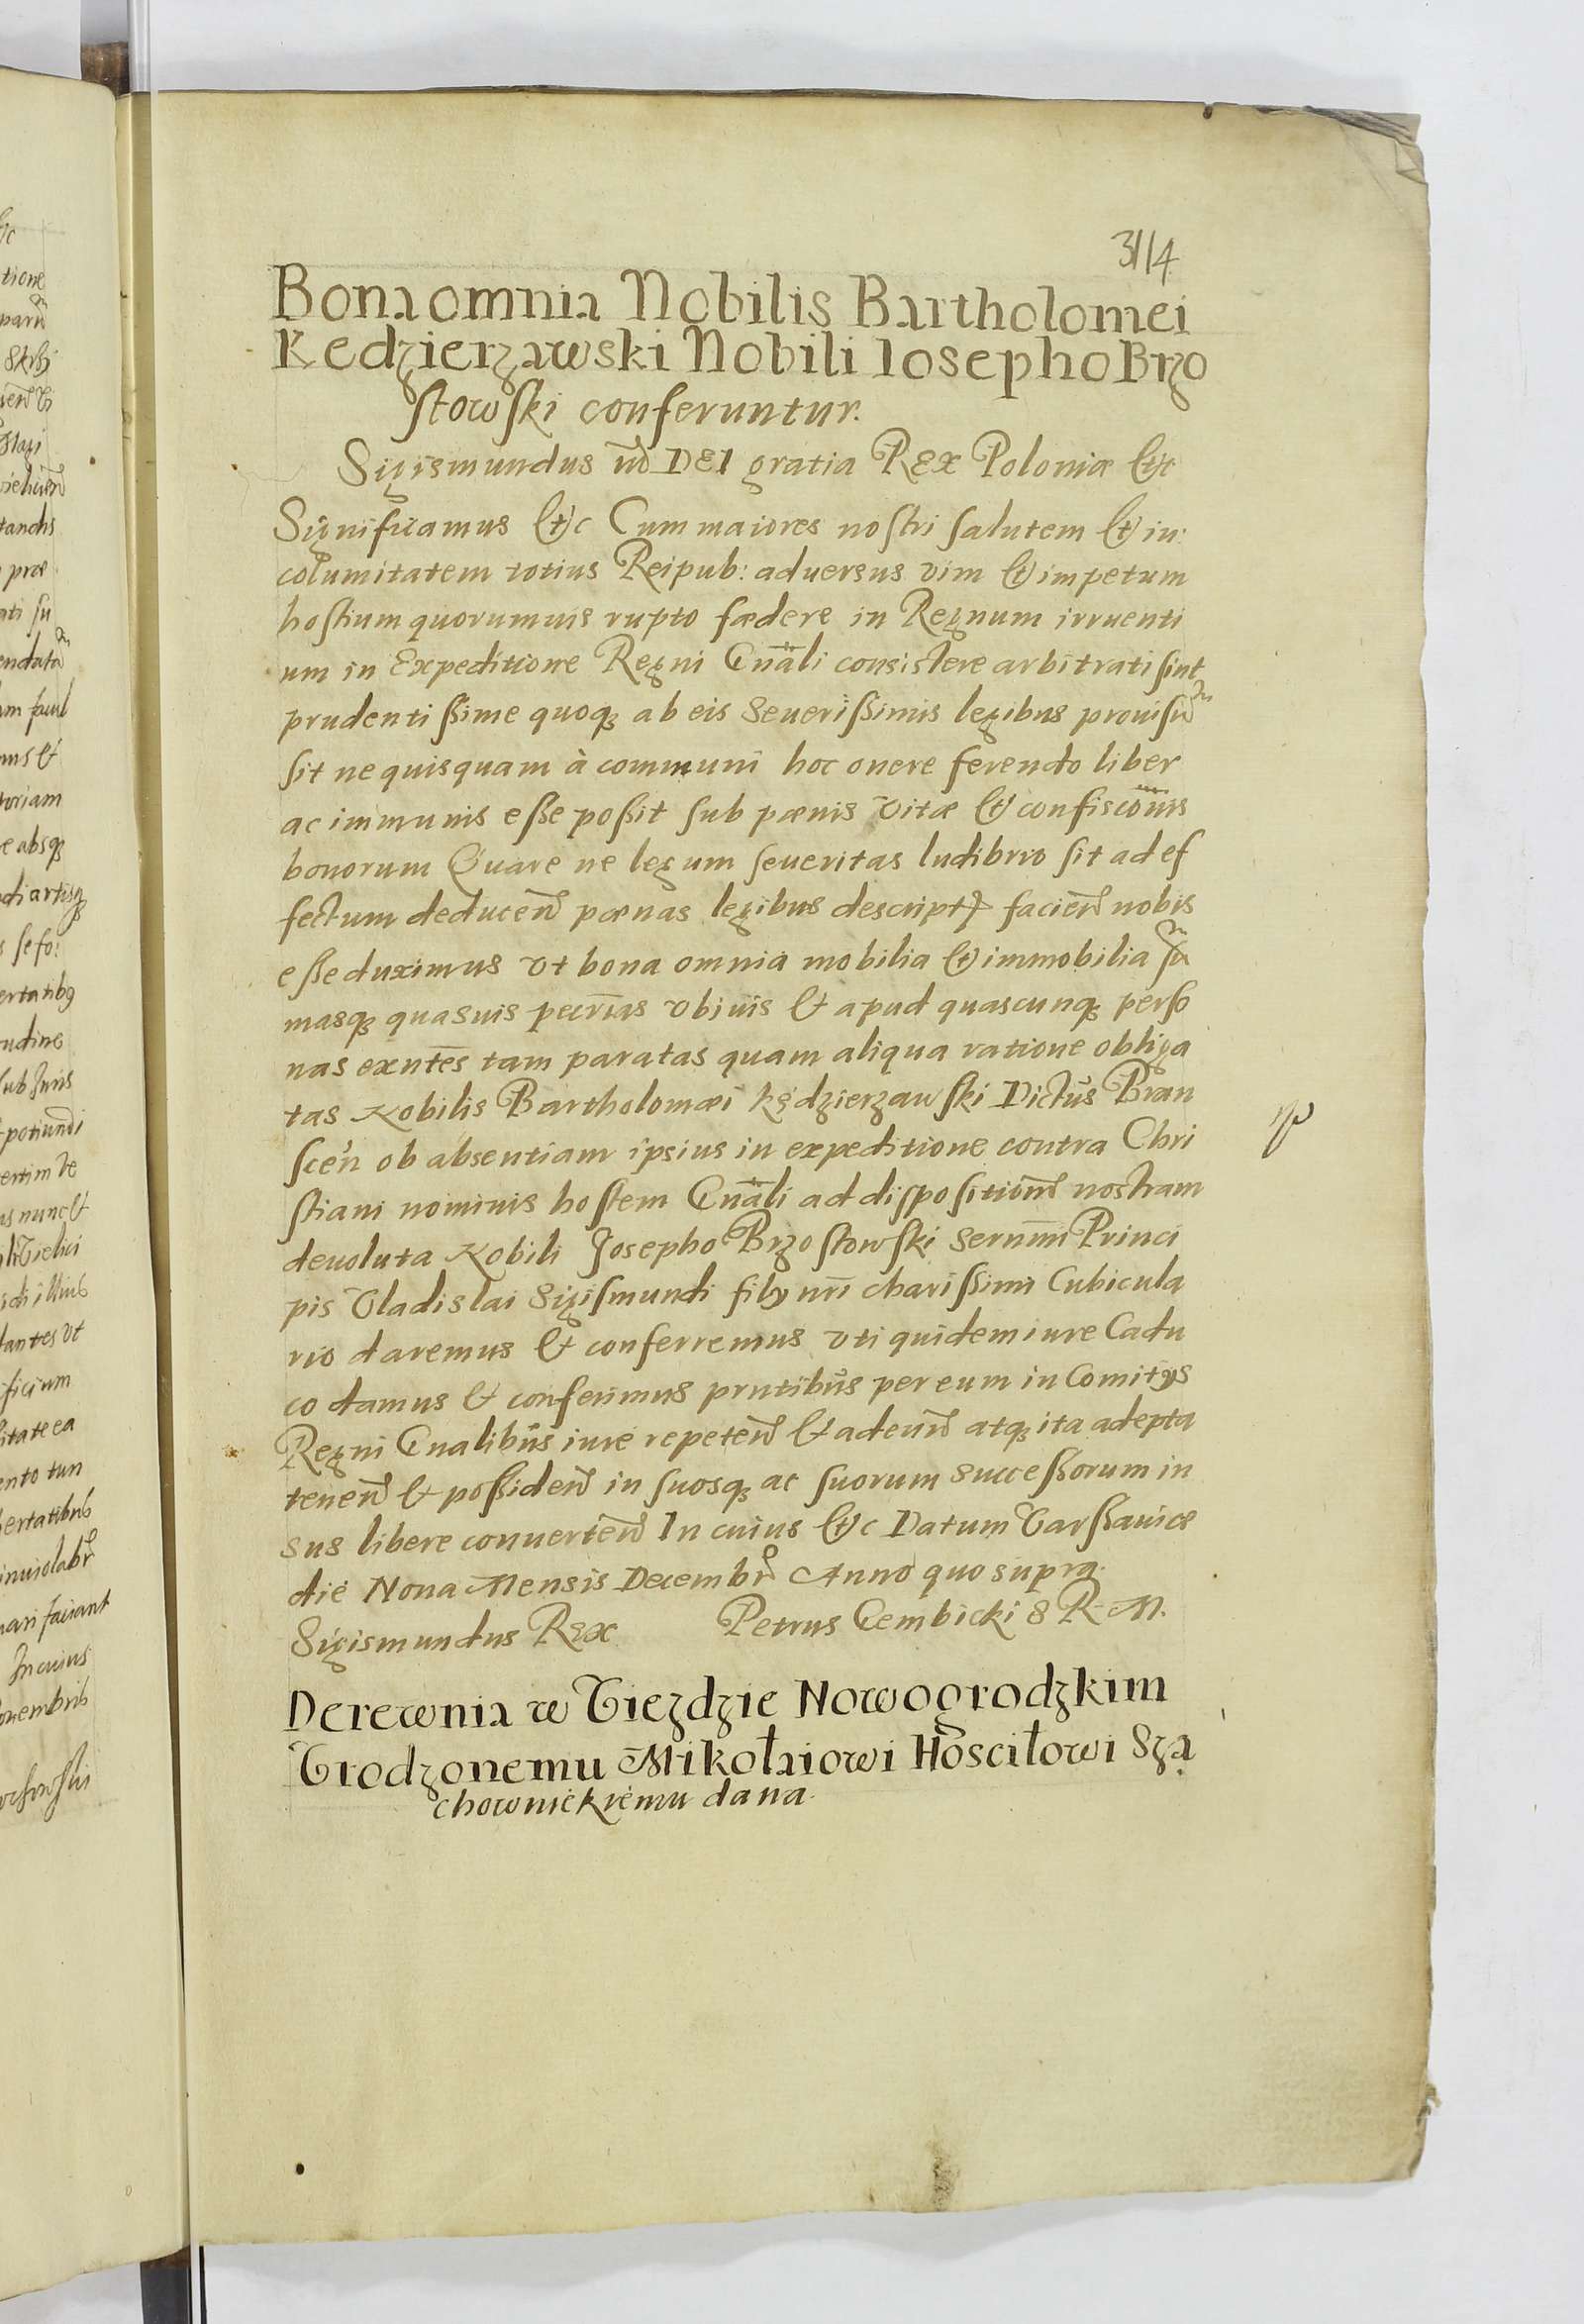 3114
Bona omnia Nobilis Bartholomei
Kedzierzawski Nobili Iosepho Brzo
stowski conferuntur.
Sigismundus III DEI gratia Rex Poloniæ &c
Significamus &c Cum maiores nostri salutem & in:
columitatem totius Reipub: aduersus vim & impetum
hostium quorumuis rupto fædere in Regnum irruenti
um in Expeditione Regni Gnāli consistere arbitrati sint
prudentissime quoq; ab eis seuerissimis legibus prouisū
sit ne quisquam à communi hoc onere ferendo liber
ac immunis esse possit sub pœnis vitæ & confiscōnis
bonorum Quare ne legum seueritas ludibrio sit ad ef
fectum deducen̄ pœnas legibus descript: facien̄ nobis
esse duximus vt bona omnia mobilia & immobilia sū
masq; quasuis pecrias vbiuis & apud quascunq; perso
nas exntēs tam paratas quam aliqua ratione obliga
tas Nobilis Bartholomæi Kędzierzawski Dictus Bran
scen̄ ob absentiam ipsius in expeditione contra Chri
stiani nominis hostem Gnāli ad dispositionē nostram
deuoluta Nobili Josepho Brzostowski Sernmi Princi
pis Vladislai Sigismundi filij nri charissimi Cubicula
rio daremus & conferremus vti quidem iure Cadu
co damus & conferimus prntibus per eum in Comitijs
Regni Gnalibus iure repeten̄ & adeun̄ atq; ita adepta
tenen̄ & possiden̄ in suosq; ac suorum successorum in
sus libere conuerten̄ In cuius &c Datum Varssauiæ
die Nona Mensis Decembr̄ Anno quo supra.
Sigismundus Rex Petrus Gembicki S R M.
Derewnia w Viezdzie Nowogrodzkim
Vrodzonemu Mikołaiowi Hoscilowi Szą
chownickiemu dana.